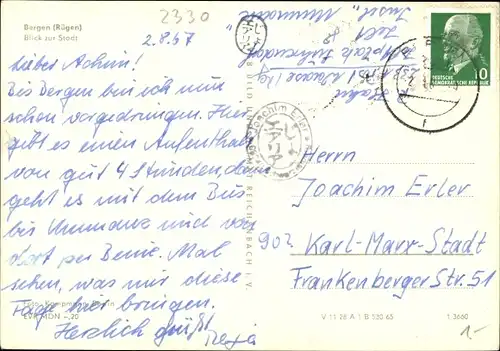 Bergen (Rügen)
Blick zur Stadt
2330
2.8.67
Lieber Achim!
Bis Bergen bin ich nun
schon vorgedrungen. Hier
gibt es einen Aufenthalt
von gut 4 Stunden, dann
geht es mit dem Bus
bis Ummanz und von
dort per Beine. Mal
sehen, was mir diese
Tage hier bringen.
Herzlich grüßt
Insel Ummanz
DEUTSCHE
DEMOKRATISCHE REPUBLIK
10
Joachim Erler
Herrn
Joachim Erler
902 Karl-Marx-Stadt
Frankenbergerstr. 51
REICHENBACH I. V.
V 11 28 A 1 B 530 65
1 3660
1.-